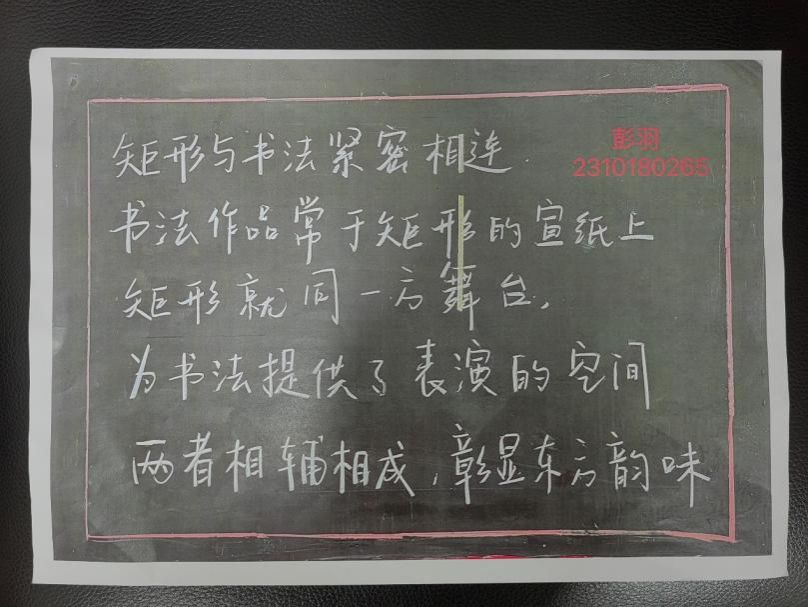 矩形与书法紧密相连.
彭羽
2310180265
书法作品常于矩形的宣纸上
矩形就同一方舞台,
为书法提供了表演的空间
两者相辅相成,彰显东方韵味